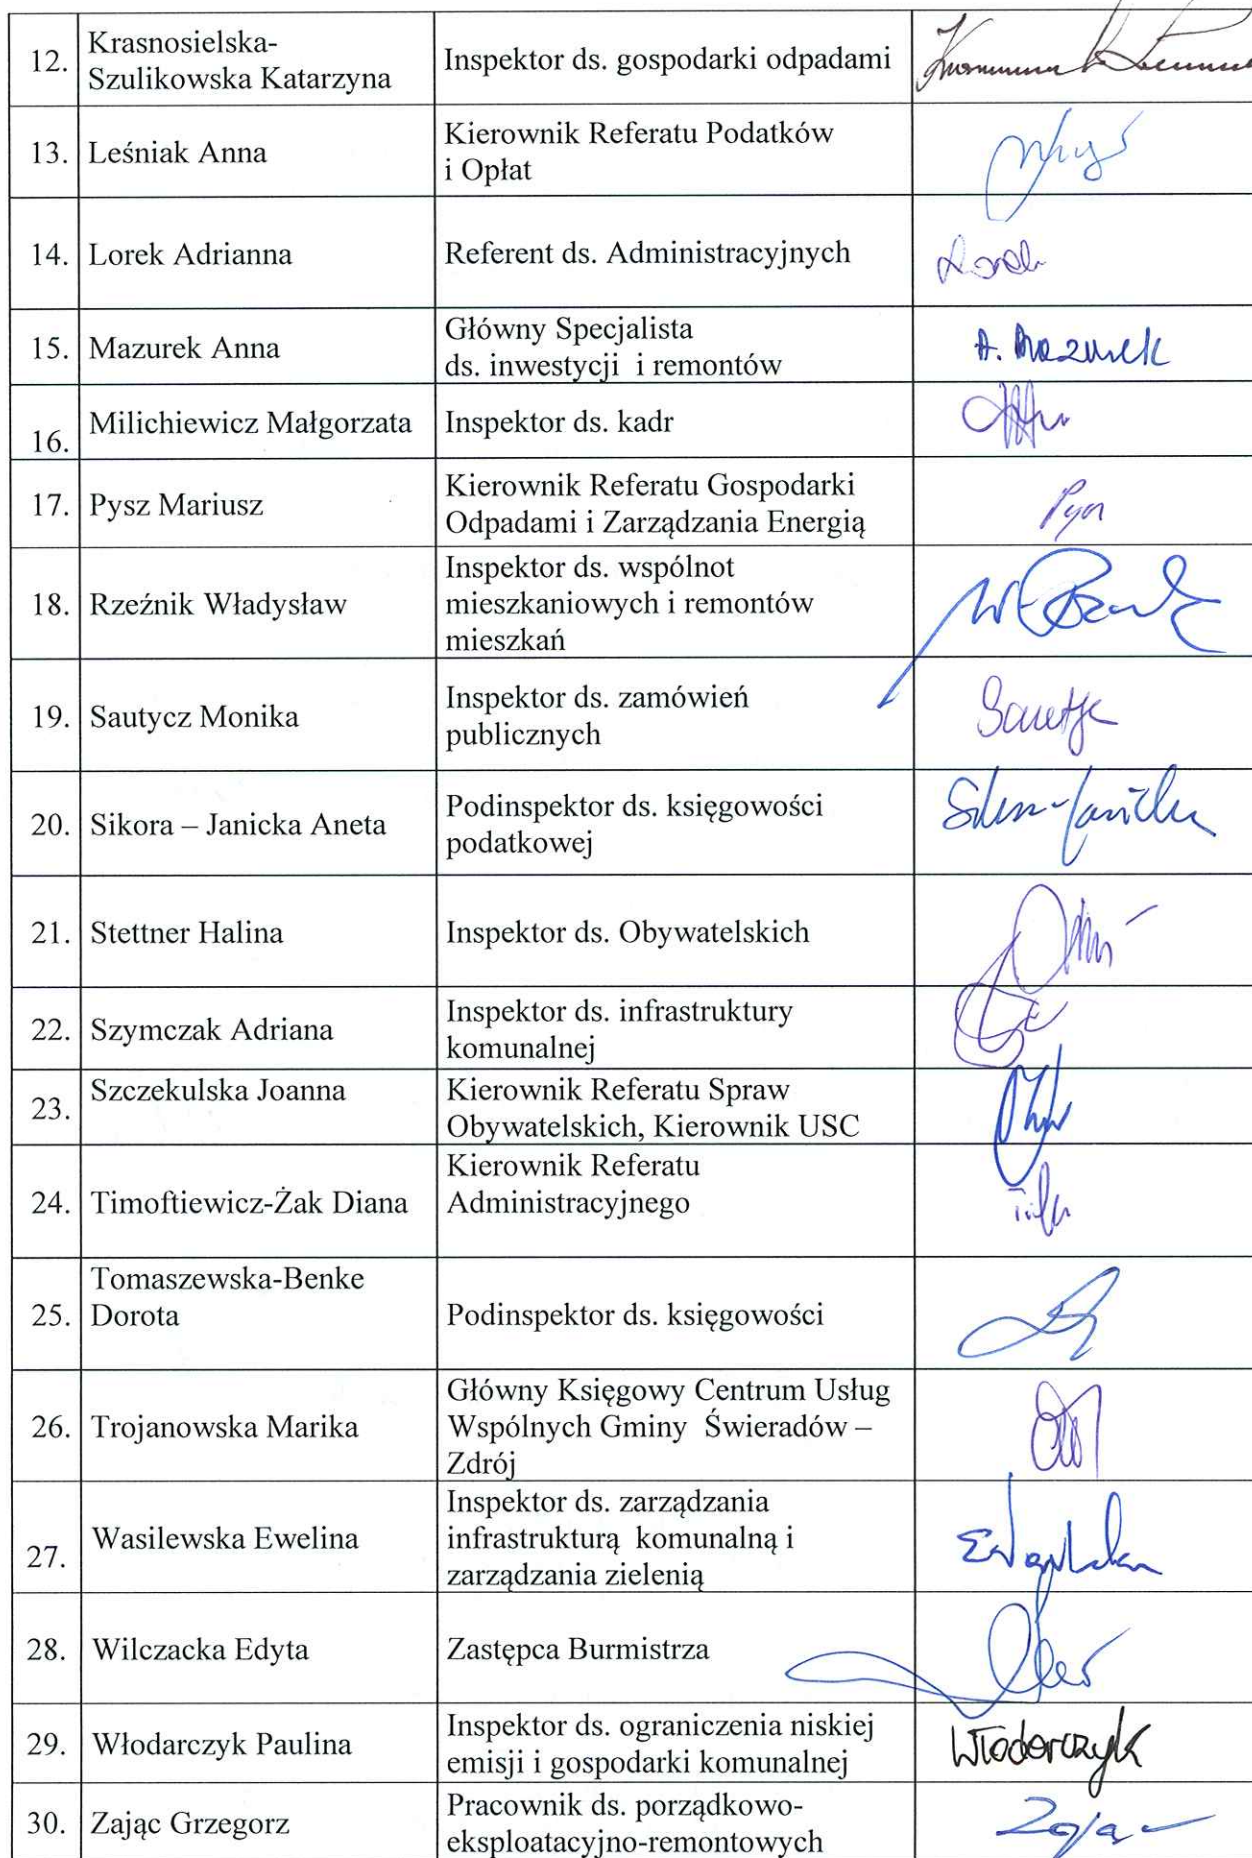 12. Krasnosielska-
Szulikowska Katarzyna
Inspektor ds. gospodarki odpadami
13. Leśniak Anna
Kierownik Referatu Podatków
i Opłat
14. Lorek Adrianna
Referent ds. Administracyjnych
Lorek
15. Mazurek Anna
Główny Specjalista
ds. inwestycji i remontów
A. Mazurek
16. Milichiewicz Małgorzata
Inspektor ds. kadr
17. Pysz Mariusz
Kierownik Referatu Gospodarki
Odpadami i Zarządzania Energią
18. Rzeźnik Władysław
Inspektor ds. wspólnot
mieszkaniowych i remontów
mieszkań
19. Sautycz Monika
Inspektor ds. zamówień
publicznych
20. Sikora – Janicka Aneta
Podinspektor ds. księgowości
podatkowej
21. Stettner Halina
Inspektor ds. Obywatelskich
22. Szymczak Adriana
Inspektor ds. infrastruktury
komunalnej
23. Szczekulska Joanna
Kierownik Referatu Spraw
Obywatelskich, Kierownik USC
24. Timoftiewicz-Żak Diana
Kierownik Referatu
Administracyjnego
25. Tomaszewska-Benke
Dorota
Podinspektor ds. księgowości
26. Trojanowska Marika
Główny Księgowy Centrum Usług
Wspólnych Gminy Świeradów –
Zdrój
27. Wasilewska Ewelina
Inspektor ds. zarządzania
infrastrukturą komunalną i
zarządzania zielenią
28. Wilczacka Edyta
Zastępca Burmistrza
29. Włodarczyk Paulina
Inspektor ds. ograniczenia niskiej
emisji i gospodarki komunalnej
Włodarczyk
30. Zając Grzegorz
Pracownik ds. porządkowo-
eksploatacyjno-remontowych
Zając